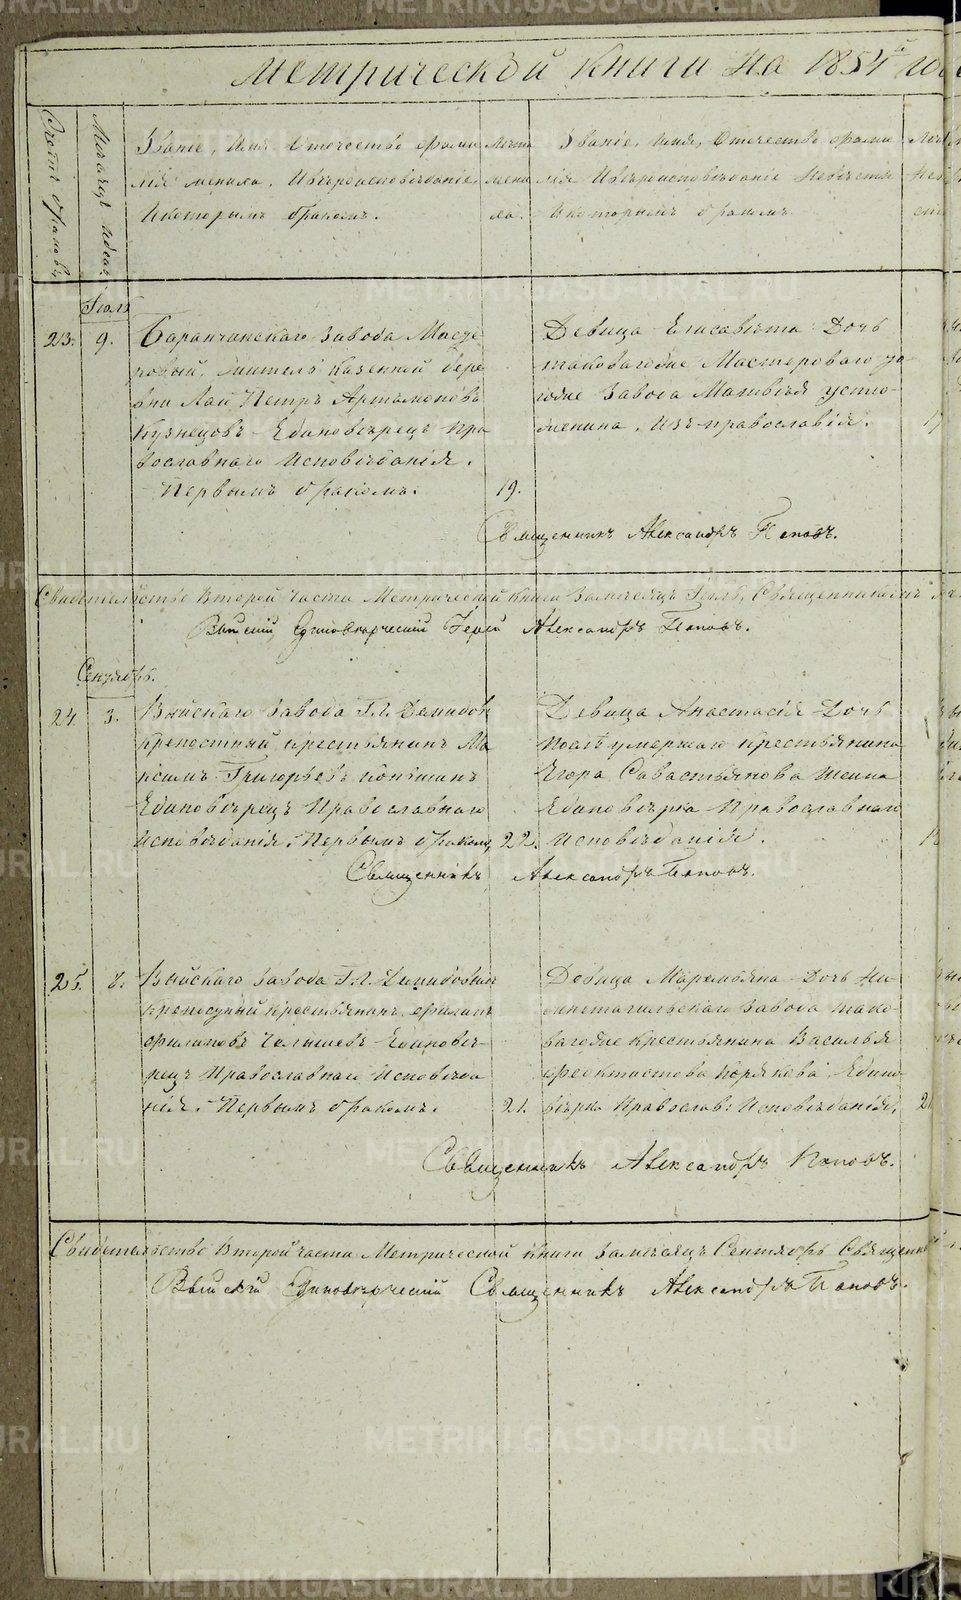 Метрической книги на 1854й го
Счетъ браковъ
Месяцъ и день
Званіе, Имя Отечество фами
лія жениха, Ивѣроисповѣданіе,
Икоторымъ бракомъ.
Лѣта
жени
ха.
Званіе, Имя, Отечество фами
лія Ивѣроисповѣданіе Невѣсты
Икоторымъ бракомъ
Лѣта
Невѣ
сты
Іюль
23. 9. Баранчинскаго Завода Масте
ровый, житель Казенной дере
вни Лаи Петръ Артамоновъ
Кузнецовъ Единовѣрецъ Пра
вославнаго Исповѣданія.
Первымъ бракомъ. 19.
Девица Елисавѣта Дочь
таковагоже Мастероваго то
гоже Завода Матвѣя Устю-
жанина, Изъ православія.
Священникъ Александръ Поповъ.
Свидетельство Второй части Метрической Книги Замѣсяцъ Іюль, Священникомъ
Выйскій Единовѣрческій Іерей Александръ Поповъ.
Сентябрь.
24 3. Выйскаго Завода Г.Г. Демидов
Крепостный крестьянинъ Ма
ксимъ Григорьевъ
Единовѣрецъ Православнаго
Исповѣданія, Первымъ бракомъ, 22.
Девица Анастасія Дочь
После умершаго Крестьянина
Егора Савастьянова Шеина
Единовѣрка Православнаго
Исповѣданія.
Священникъ Александръ Поповъ.
25. 8. Выйскаго Завода Г.Г. Демидовых
Крепосный Крестьянин, Филип
Филиповъ Челышевъ Единовѣ-
рецъ Православнаго Исповѣда
нія. Первымъ бракомъ. 21.
Девица Маремьяна Дочь Ни
жнетагильскаго Завода тако-
вагоже Крестьянина Василья
Феоктистова Едино
вѣрка Православ: Исповѣданія,
Священникъ Александръ Поповъ.
Свидетельство Второй части Метрической Книги Замѣсяцъ Сентябрь Священни
Выйскій Единовѣрческій Священникъ Александръ Поповъ.
METRIKI.GASO-URAL.RU